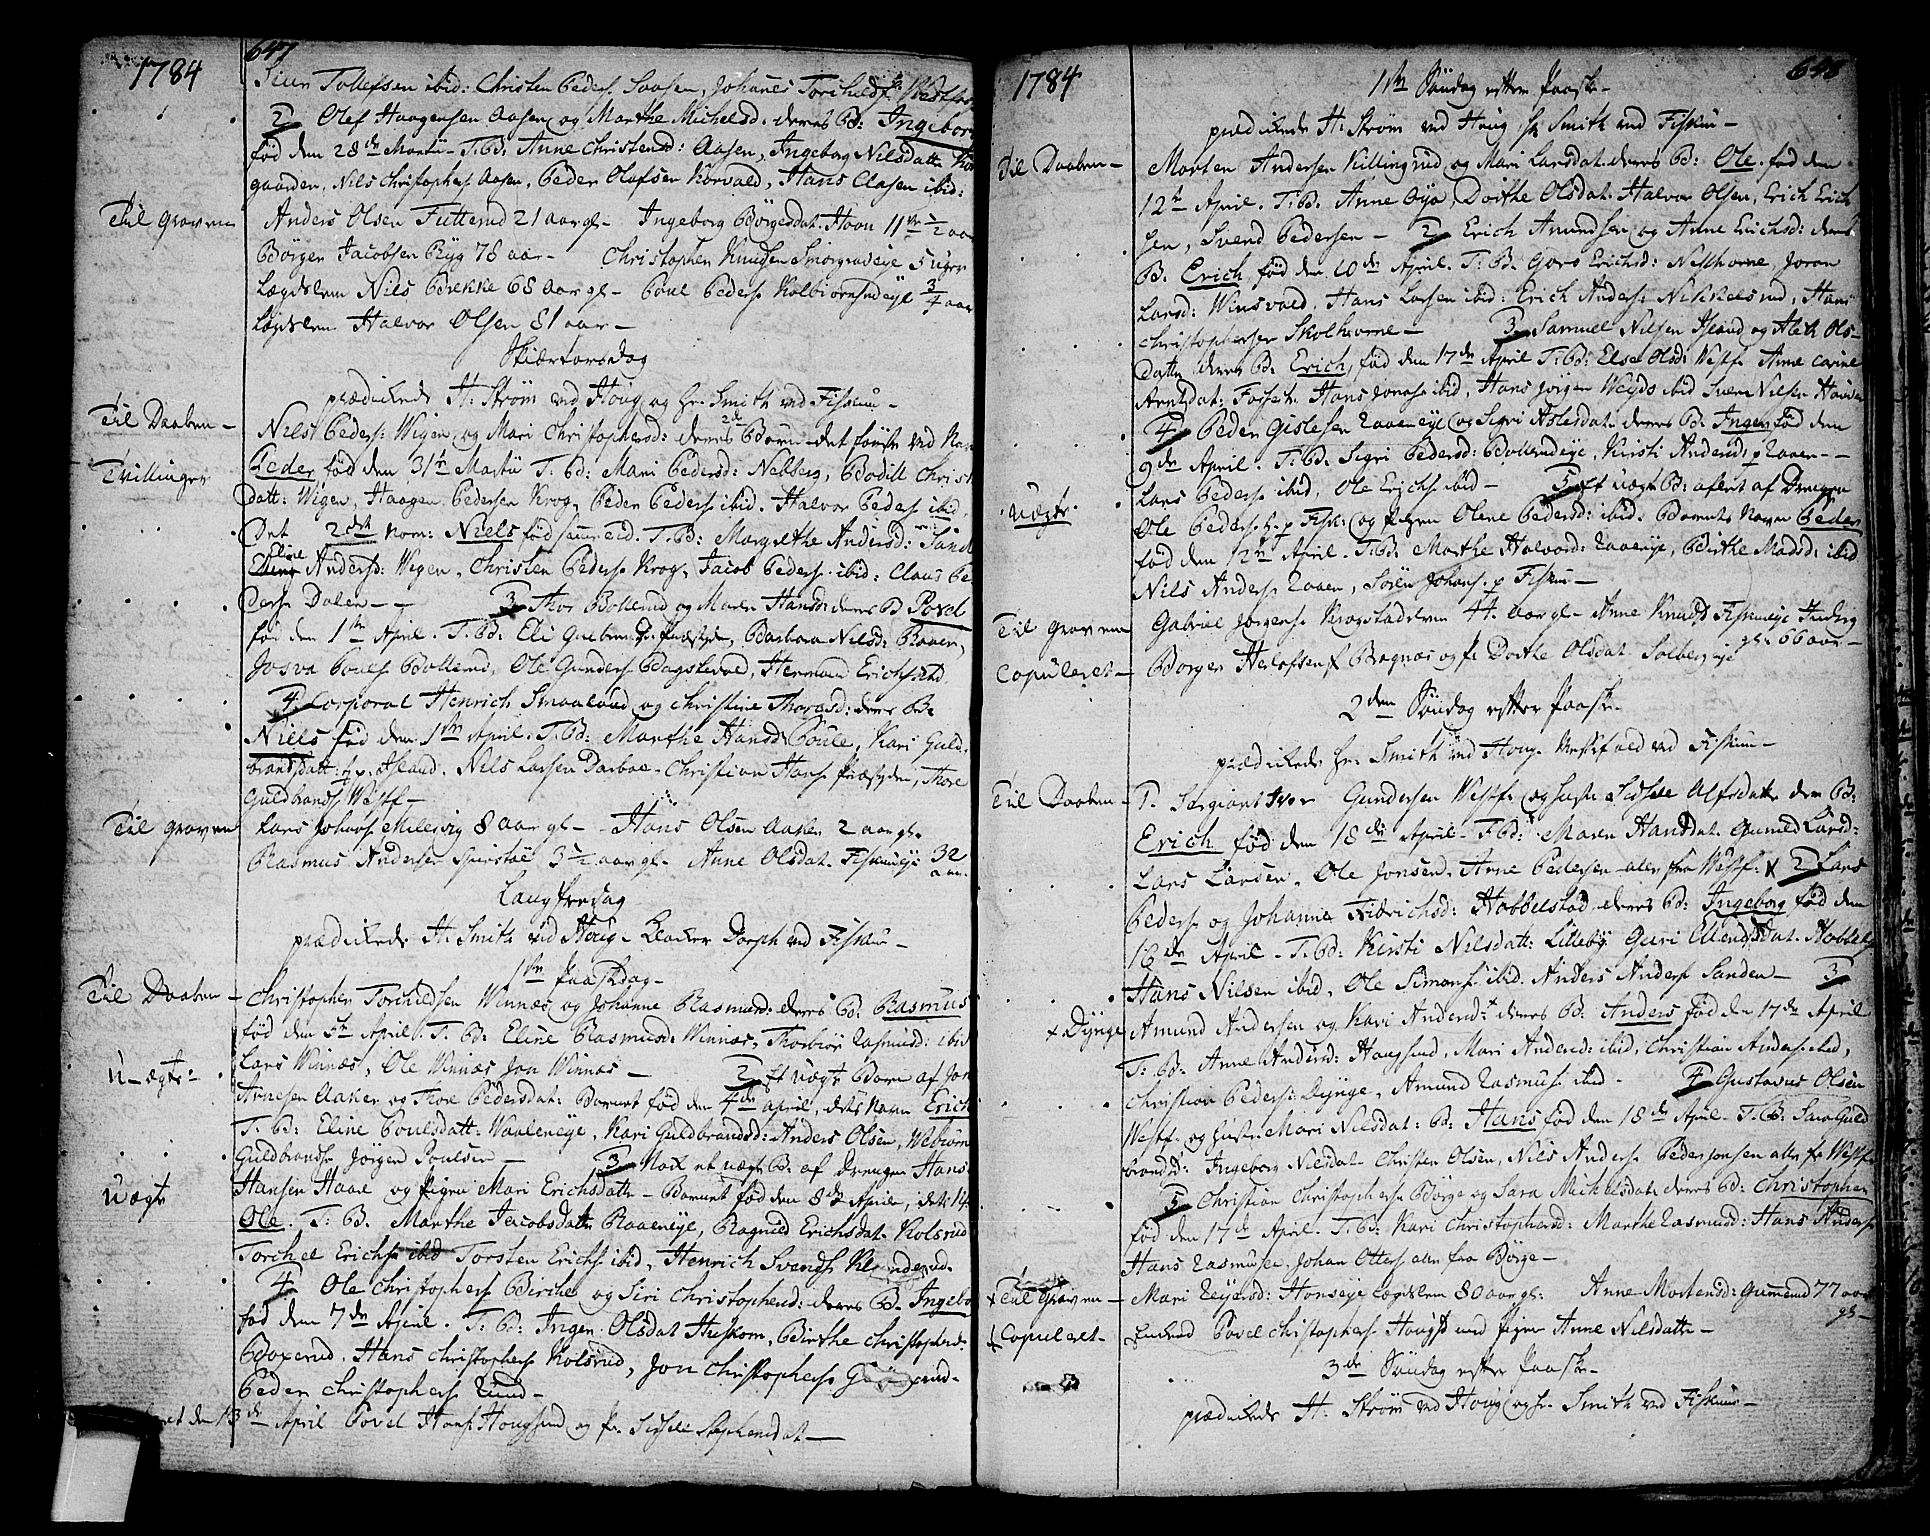 1784
647
Siur Tollefsen ibid: Christen Peders. Saasen, Johanes Torchilds.
2 Olef Haagensen Aasen og Marthe Michelsd: deres B: Ingeborg
fød den 28de Martii - T. B: Anne Christensd: Aasen, Ingeborg Nilsdatt:
gaarden, Nils Christophers. Aasen, Peder Olafsen Korvald, Hans Clasen ibid:
Til Graven
Anders Olsen Futterud 21 aar gl - Ingeborg Børgesdat. Hoen 11 1/2 aar
Børger Jacobsen Ryg 78 aar - Christopher Knudsen Smørgraveye 5 uger
Lægdslem Nils Bække 68 aar gl - Poul Peders. Kolbiørnsrudeye 3/4 aar
Lægdslem Halvor Olsen 81 aar -
Skiærtorsdag
prædickede H: Strøm ved Houg og Hr. Smith ved Fiskum -
Til Daaben -
Nils Peders: Wigen og Mari Christophersd: deres 2de Børn - det første ved Navn
Tvillinger
Peder fød den 31te Martii T. B: Mari Pedersd: Nebberg, Bodill Christ
datt: Wigen, Haagen Pedersen Krog, Peder Peders. ibid. Halvor Peders. ibid.
Det 2det Nom: Niels fød samme Tid. T. B: Margrethe Andersd: Sand
Eline Andersd: Wigen, Christen Peders. Krog, Jacob Peders. ibid: Claus Pe
ders. Dalen - - 3 Thor Bollerud og Maren Hansd: deres B Povel
fød den 1te April. T. B: Eli Præstyden, Barbara Nilsd: Raaen,
Josva Pouls. Bollerud, Ole Gunders. Bagstevold, Herman Erichs. ibid
4 Corporal Henrich Smaalund og Christine Thorasd: deres B.
Niels fød den 1te April. T. B: Marthe Hansd: Poule, Kari Guld-
brandsdatt: Nils Larsen Darboe - Christian Hans. Præstyden, Thore
Guldbrands. Westf -
Til Graven
Lars Johans. Millesvig 8 aar gl - Hans Olsen Aasen 2 aar gl.
Rasmus Anders. 3 1/2 aar gl - Anne Olsdat. Fiskumeye 32 aar -
Langfredag
prædickede H: Smith ved Houg - Klocker Dorph ved Fiskum -
1te Paaskedag -
Til Daaben -
Christopher Torchildsen Winnæs og Johanne Rasmusd: deres B. Rasmus
fød den 5te April. T. B: Eline Rasmusd: Winnæs, Thorbiør Rasmusd: ibid
Lars Winnæs, Ole Winnæs Jon Winnæs -
U-ægte -
2 Et uægte Barn af Jon
Arnesen Aaker og Thore Pedersdat: Barnet fød den 4de April, dets Navn Erich
T. B: Eline Poulsdatt: Waaleneye, Kari Guldbrandsd: Anders Olsen, Webiørn
Guldbrands. Jørgen Poulsen -
Uægte
3 Nok et uægte B: af Drengen Hans
Hansen Haare og Pigen Mari Erichsdatt - Barnet fød den 8de April, dets N:
Ole. T. B. Marthe Jacobsdatt. Raaeneye, Ragnild Erichsdat. Kolsrud
Torchel Erichs. ibid Torsten Erichs. ibid, Henrich Svends.
4 Ole Christophers. Bircke og Siri Christophersd: deres B. Ingeborg
fød den 7de April. T. B: Inger Olsdat Huskom, Birthe Christophersd:
Boxerud, Hans Christophers. Kolsrud, Jon Christophers.
Peder Christophers. Lund -
den 13de April Povel Hans. Hougsund og P. Sidsele Stephensdat -
1784
648
1te Søndag efter Paaske -
prædickede H: Strøm ved Houg Hr Smith ved Fiskum -
Til Daaben -
Morten Andersen Killingrud og Mari Larsdat. deres B: Ole. fød den
12te April. T. B. Anne Øya, Dorthe Olsdat. Halvor Olsen, Erich Erich
sen, Svend Pedersen - 2 Erich Amundsen og Anne Erichsd: deres
B. Erich fød den 10de April. T. B. Goro Erichsd: Joran
Larsd: Winsvold, Hans Larsen ibid: Erich Anders. Nikkelsrud, Hans
Christophersen Skolhorne - 3 Samuel Nilsen Island og Aleth Ols-
datt deres B: Erich fød den 17de April T. B: Else Olsd: Westf. Anne Carine
Arntzdat: Fosseh. Hans Jonas. ibid, Hans Jørgen Weyds ibid Siver Nilsen
4 Peder Gislesen Raaeneye og Sigri Asblesdat. deres B. Inger fød den
9de April. T. B. Sigri Pedersd: Bollerudeye, Kirsti Andersd: p Raaen - -
Lars Peders. ibid, Ole Erichs. ibid -
Uægte
5 Et uægte B: aflet af Drengen
Ole Peders. p Fisk: og Pigen Olene Pedersd: ibid. Barnets Navn Peder
fød den 12te April. T. B: Marthe Halvorsd: Raaeneye, Birthe Madsd: ibid
Nils Anders. Raaen, Søren Johans. p Fiskum -
Til Graven
Gabriel Jørgens. Krogstadelven 44. aar gl - Anne Knudsd Fiskumeye
gl. 66 aar -
Copuleret -
Børger Helofsen Bragnæs og P. Dorthe Olsdat. Solbergeye
2den Søndag efter Paaske.
prædickede Hr. Smith ved Houg. Messefald ved Fiskum -
Til Daaben -
1. Sergiant Iver Gundersen Westf og Hustr. Sidsele Alfsdatt. deres B:
Erich fød den 18de April - T. B: Maren Hansdat. Gunild Larsd:
Lars Larsen, Ole Jonsen, Arne Pedersen - alle fra Westf: 2 Lars
Peders. og Johanne Didrichsd: Hobbelstad, deres B: Ingeborg fød den
16de April - T. B: Kirsti Nilsdatt: Lilleby Guri Ellendsdat. Hobbels
Hans Nilsen ibid, Ole Simons. ibid. Anders Anders. Sanden - 3
x Dynge
Amund Andersen og Kari Andersd. x deres B: Anders fød den 17de April
T: B: Anne Andersd: Hougsund, Mari Andersd: ibid, Christian Anders. ibid,
Christian Peders. Dynge, Amund Rasmus. ibid - 4 Gustavus Olsen
Westf. og Hustr. Mari Nilsdat: B: Hans fød den 18de April - T. B: Sara Guld
brandsd: Ingeborg Nilsdat. Christen Olsen, Nils Anders. Peder Jonsen alle fr Westf.
5 Christian Christophers. Børge og Sara Michelsdat. deres B: Christopher
fød den 17de April. T. B: Kari Christophersd: Marthe Rasmusd: Hans Anders.
Hans Rasmusen, Johan Otters. alle fra Børge -
Til Graven -
Mari Reyersd: Honseye Lægdslem 80 aar gl: Anne Mortensd: Gunerud 77 aar
gl -
Copuleret -
Enkem. Povel Christophers. Hougs. med Pigen Anne Nilsdatt -
3de Søndag efter Paaske -
prædickede H: Strøm ved Houg og Hr. Smith ved Fiskum -